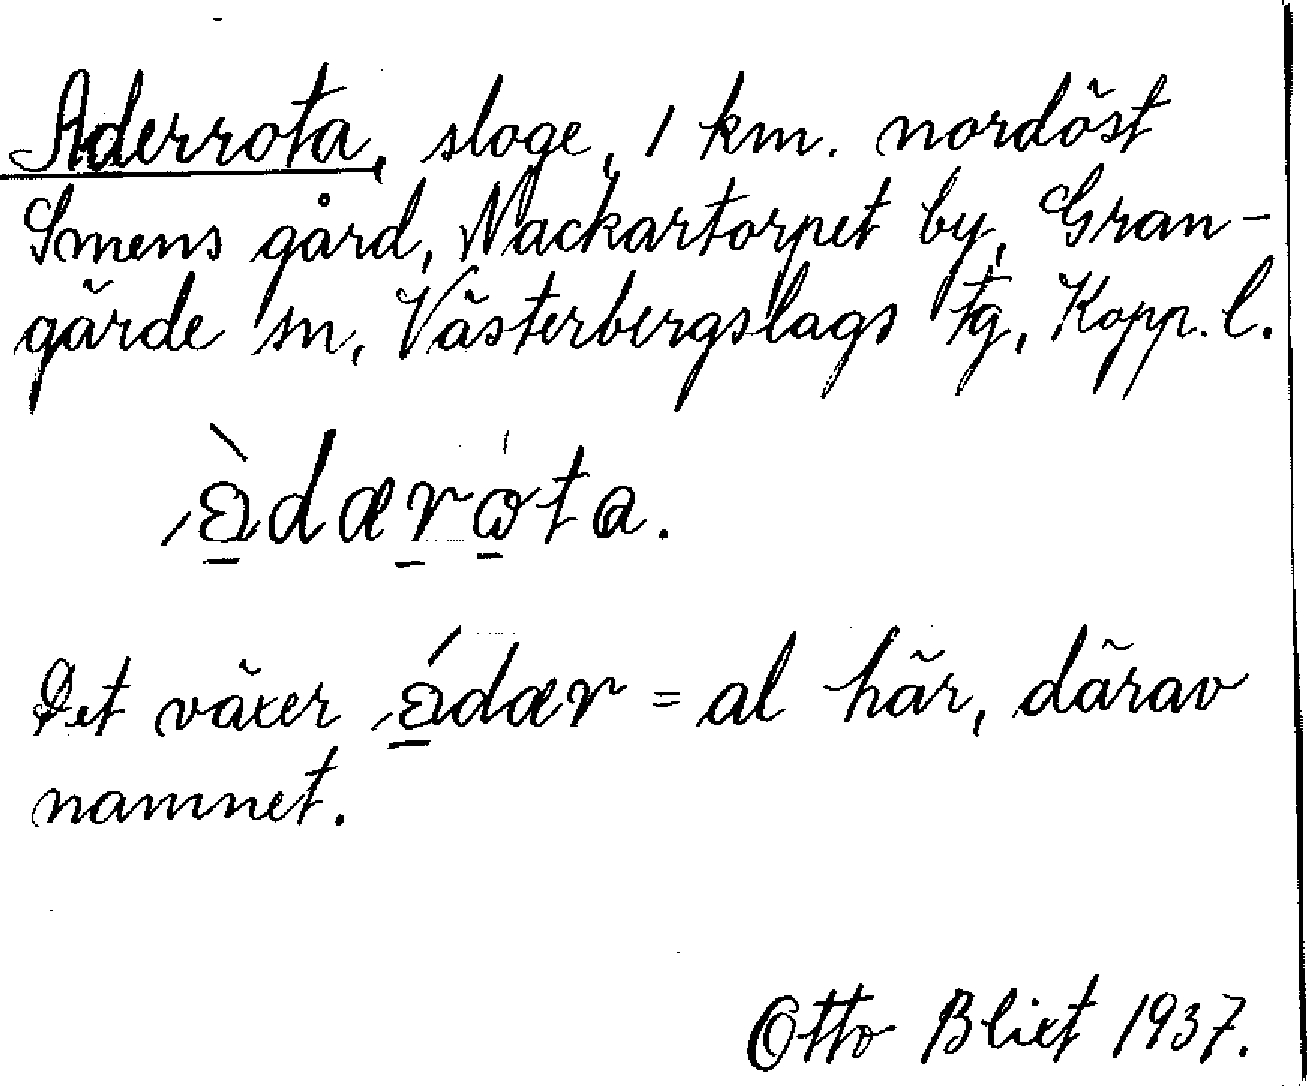 Aderrota, sloge, 1 km. nordöst
Smens gård, Nackartorpet by, Gran-
gärde sn, Västerbergslags tg, Kopp. l.
àdærota.
Det växer ádær = al här, därav
namnet.
Otto Blixt 1937.